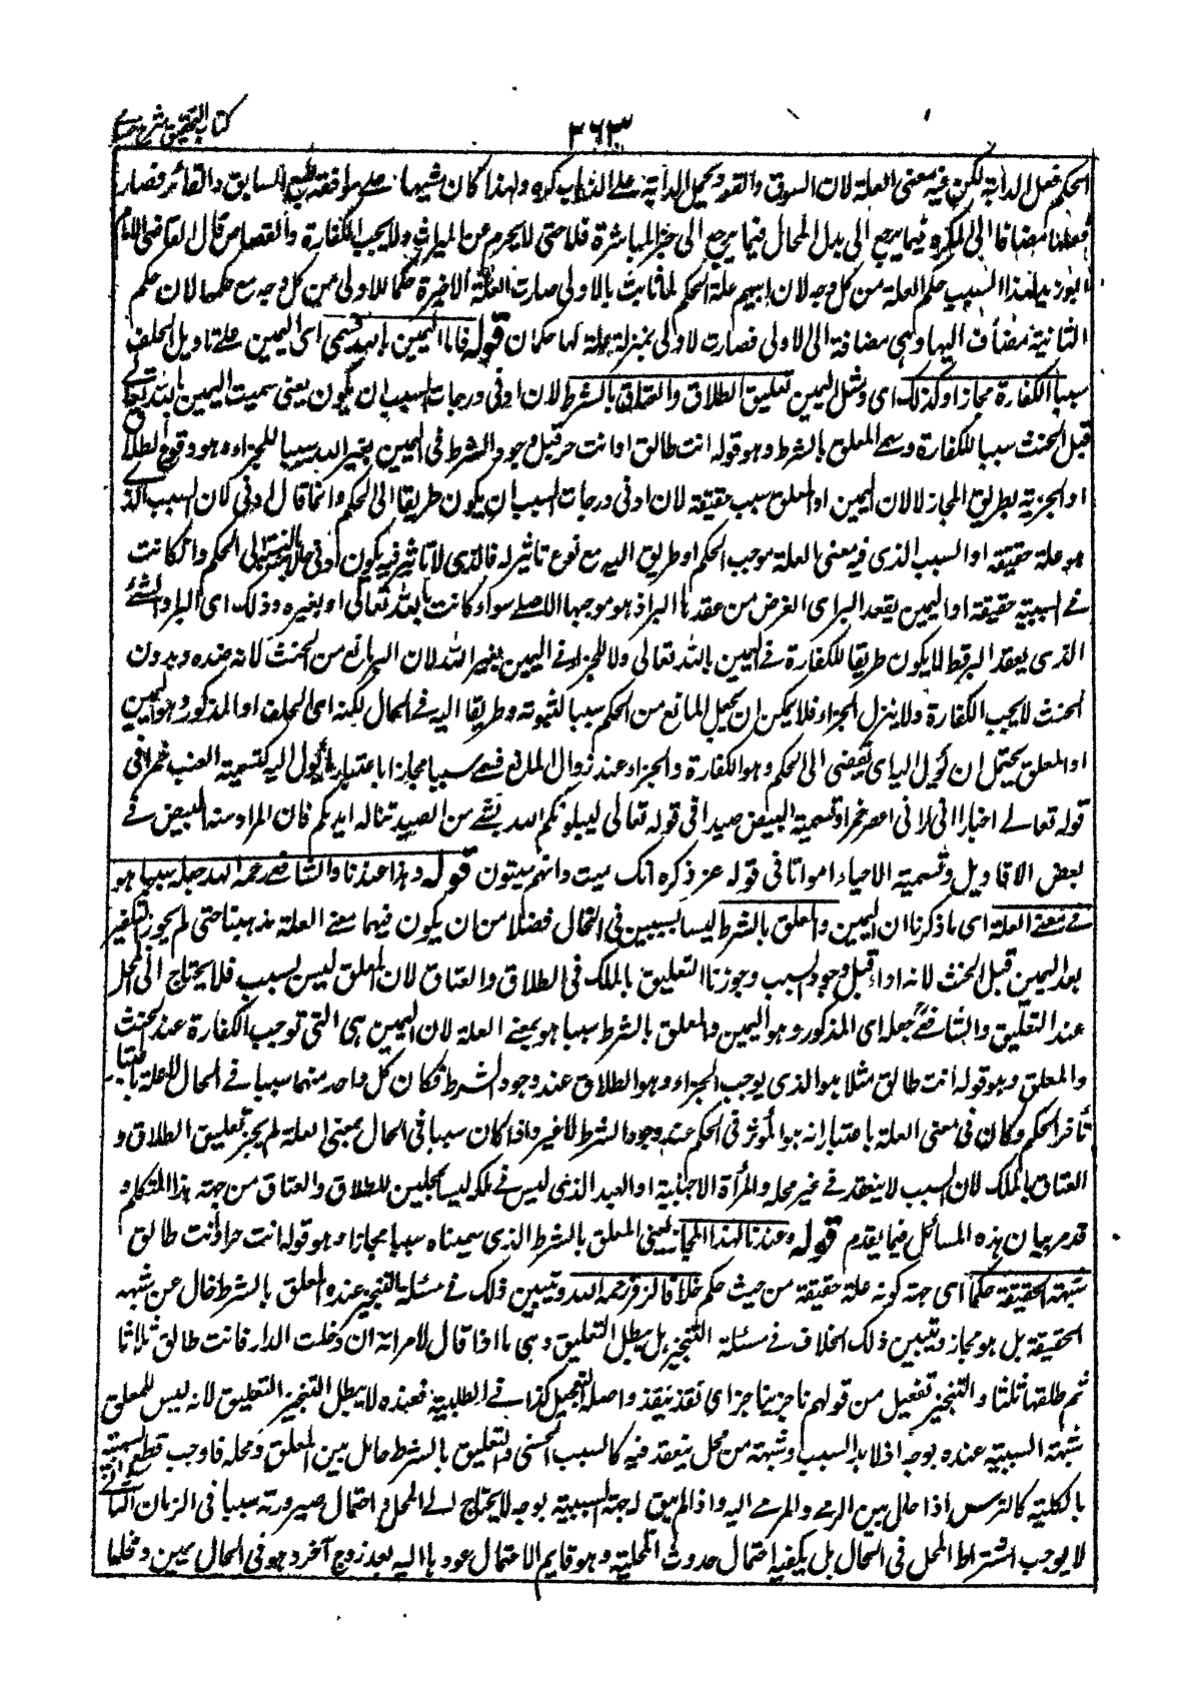 كتاب التحقيق شرح حسامي
٣٦٣
الحكم فعل الدابة لكن فيه معنى العلة لان السوق والقود يحمل الدابة على الذهاب كره ولهذا كان مشيها على موافقة طبع السابق والقائد فصار
فعلها مضافا الى المكره فيما يرجع الى بدل المحل لا فيما يرجع الى جزاء المباشرة فلا حتى لا يحرم عن الميراث ولا يجب الكفارة والقصاص قال القاضى الامام
ابو زيد لهذا السبب حكم العلة من كل وجه لان علة الحكم لما ثابت بالاولى صارت العلة الاخيرة حكما للاولى من كل وجه مع حكمها لان حكم
الثانية مضاف اليها وهى مضافة الى الاولى فصارت الاولى بمنزلة علة لها حكمان قوله فاما اليمين بالله تسمى اى اليمين على تاويل الحلف
سببا للكفارة مجازا وكذلك اى ومثل اليمين تعليق الطلاق والعتاق بالشرط لان ادنى درجات السبب ان يكون يعنى سميت اليمين بالله تعالى
قبل الحنث سببا للكفارة وسمى المعلق بالشرط وهو قوله انت طالق او انت حر قبل وجود الشرط فى اليمين بغير الله سببا للجزاء وهو وقوع الطلاق
او الحرية بطريق المجاز لا لان اليمين او المعلق سبب حقيقة لان ادنى درجات السبب ان يكون طريقا الى الحكم وانما قال ادنى لان السبب الذى
هو علة حقيقة او السبب الذى فيه معنى العلة موجب الحكم او طريق اليه مع نوع تاثير له فالذى لا تاثير فيه يكون ادنى حالا بالنسبة الى الحكم وان كانت
فى السببية حقيقة او اليمين يعقد البر اى الغرض من عقدها البر اذ هو موجبها الاصلى سواء كانت بالله تعالى او بغيره وذلك اى البر او الشئ
الذى يعقد البر قط لا يكون طريقا للكفارة فى اليمين بالله تعالى ولا للجزاء فى اليمين بغير الله لان البر مانع من الحنث لانه ضده وبدون
الحنث لا يجب الكفارة ولا ينزل الجزاء فلا يمكن ان يجعل المانع من الحكم سببا لثبوته وطريقا اليه فى الحال لكنه اى الحلف او المذكور وهو اليمين
او المعلق يحتمل ان يؤل اليه اى يفضى الى الحكم وهو الكفارة والجزاء عند زوال المانع فسمى سببا مجازا باعتبار ما يؤل اليه كتسمية العنب خمرا فى
قوله تعالى اخبارا انى ارانى اعصر خمرا وتسمية البيض صيدا فى قوله تعالى ليبلونكم الله بشئ من الصيد تناله ايديكم فان المراد منه البيض فى
بعض الاقاويل وتسمية الاحياء امواتا فى قوله عز ذكره انك ميت وانهم ميتون قوله وهذا عندنا والشافعى رحمه الله جعله سببا هو
فى معنى العلة اى ما ذكرنا ان اليمين والمعلق بالشرط ليسا بسببين فى الحال فضلا من ان يكون فيهما معنى العلة مذهبنا حتى لم يجوز التكفير
بعد اليمين قبل الحنث لانه اداء قبل وجود السبب وجوزنا التعليق بالملك فى الطلاق والعتاق لان المعلق ليس بسبب فلا يحتاج الى المحل
عند التعليق والشافعى جعله اى المذكور وهو اليمين والمعلق بالشرط سببا هو بمعنى العلة لان اليمين هى التى توجب الكفارة عند الحنث
والمعلق وهو قوله انت طالق مثلا هو الذى يوجب الجزاء وهو الطلاق عند وجود الشرط فكان كل واحد منهما سببا فى الحال لا علة باعتبار
تأخر الحكم وكان فى معنى العلة باعتبار انه هو المؤثر فى الحكم عند وجود الشرط لا غير واذا كان سببا فى الحال بمعنى العلة لم يجز تعليق الطلاق و
العتاق بالملك لان السبب لا ينعقد فى غير محله والمرأة الاجنبية او العبد الذى ليس فى ملكه ليسا بمحلين للطلاق والعتاق من جهة هذا المتكلم و
قد مر بيان هذه المسائل فيما تقدم قوله وعندنا لهذا المجاز يعنى المعلق بالشرط الذى سميناه سببا مجازا وهو قوله انت حر او انت طالق
شبهة الحقيقة حكما اى جهة كونه علة حقيقة من حيث حكم خلافا لزفر رحمه الله ويتبين ذلك فى مسئلة التنجيز عنده المعلق بالشرط خال عن شبهة
الحقيقة بل هو مجاز ويتبين ذلك الخلاف فى مسئلة التنجيز هل يبطل التعليق وهى ما اذا قال لامراته ان دخلت الدار فانت طالق ثلاثا
ثم طلقها ثلثا والتنجيز تفعيل من قولهم ناجزا بناجز اى نقدا بنقد واصله التعجيل كذا فى الطلبة فعنده لا يبطل التنجيز التعليق لانه ليس للمعلق
شبهة السببية عنده بوجه اذ لا بد للسبب وشبهته من محل ينعقد فيه كالسبب الحسى والتعليق بالشرط حائل بين المعلق ومحله فاوجب قطع السببية
بالكلية كالترس اذا حال بين الرمى والمرمى اليه واذا لم يبق له جهة السببية بوجه لا يحتاج الى المحل واحتمال صيرورته سببا فى الزمان الثانى
لا يوجب اشتراط المحل فى الحال بل يكفيه احتمال حدوث المحلية وهو قايم لاحتمال عودها اليه بعد زوج آخر وهو فى الحال يمين ومحلها